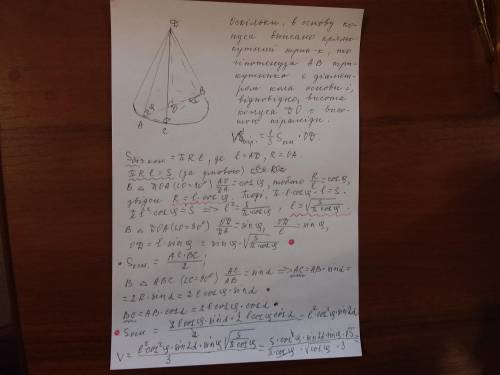 Оскільки, в основу ко-
нуса вписано прямо-
кутний трик-к, то
гіпотенуза AB три-
кутника є діамет-
ром кола основи і,
відповідно, висота
конуса DO є висо-
тою піраміди.
V = 1/3 Sосн · DO.
A
C
B
O
Sбіч.кон = πRl, де l = AD, R = OA.
πRl = S (за умовою)
В △ DOA (∠O=90°) AO/DA = cosφ, тобто R/l = cosφ,
звідси R = l·cosφ. Тоді, π·l·cosφ·l = S.
πl²cosφ = S => l² = S/πcosφ, l = √(S/πcosφ)
В △ DOA (∠O=90°) OD/DA = sinφ, OD/l = sinφ,
OD = l·sinφ = sinφ·√(S/πcosφ)
Sосн. = AC·BC/2;
В △ ABC (∠C=90°) AC/AB = sinα => AC = AB·sinα =
= 2R·sinα = 2l cosφ·sinα
BC = AB·cosα = 2l cosφ·cosα.
Sосн = 2l cosφ·sinα·2l cosφ cosα/2 = l²cos²φ·sin2α
V = l²cos²φ·sin2α·sinφ √(S/πcosφ)/3 = S·cos²φ·sin2α·sinφ·√S/πcosφ·√πcosφ·3